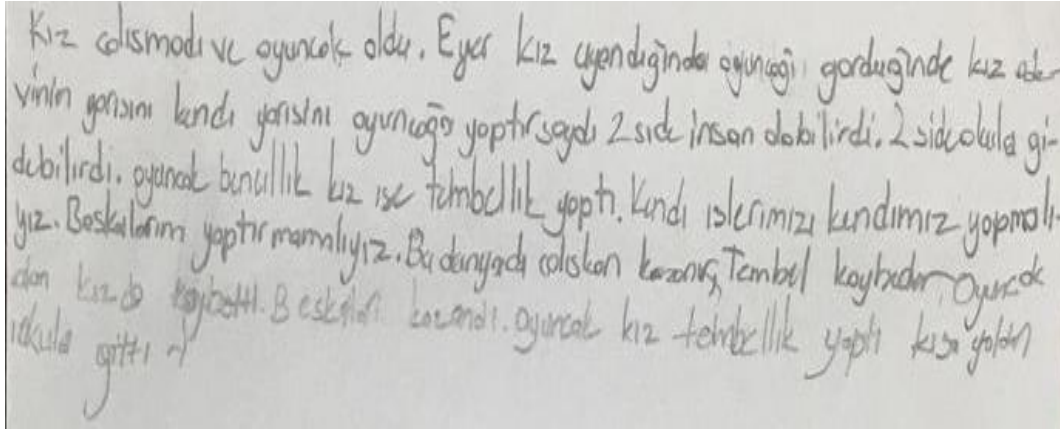 Kız çalışmadı ve oyuncak oldu. Eyer kız uyandığında oyuncağı gorduğinde kız öde-
vinin yarısını kendı yarısını oyuncağa yoptırsaydı 2 side insan olabilirdi. 2 side okula gi-
debilirdi. oyuncak bencillik kız ise tembellik yoptı. Kendı işlerimizi kendimiz yopmalı-
yız. Boskalarını yoptırmamalıyız. Bu dunyada çolışkon kazanır, Tembel kaybeder. Oyuncak
don kızda kaybettı. Beskaları kazandı. oyuncak kız tembellik yaptı kısa yoldan
okula gittı